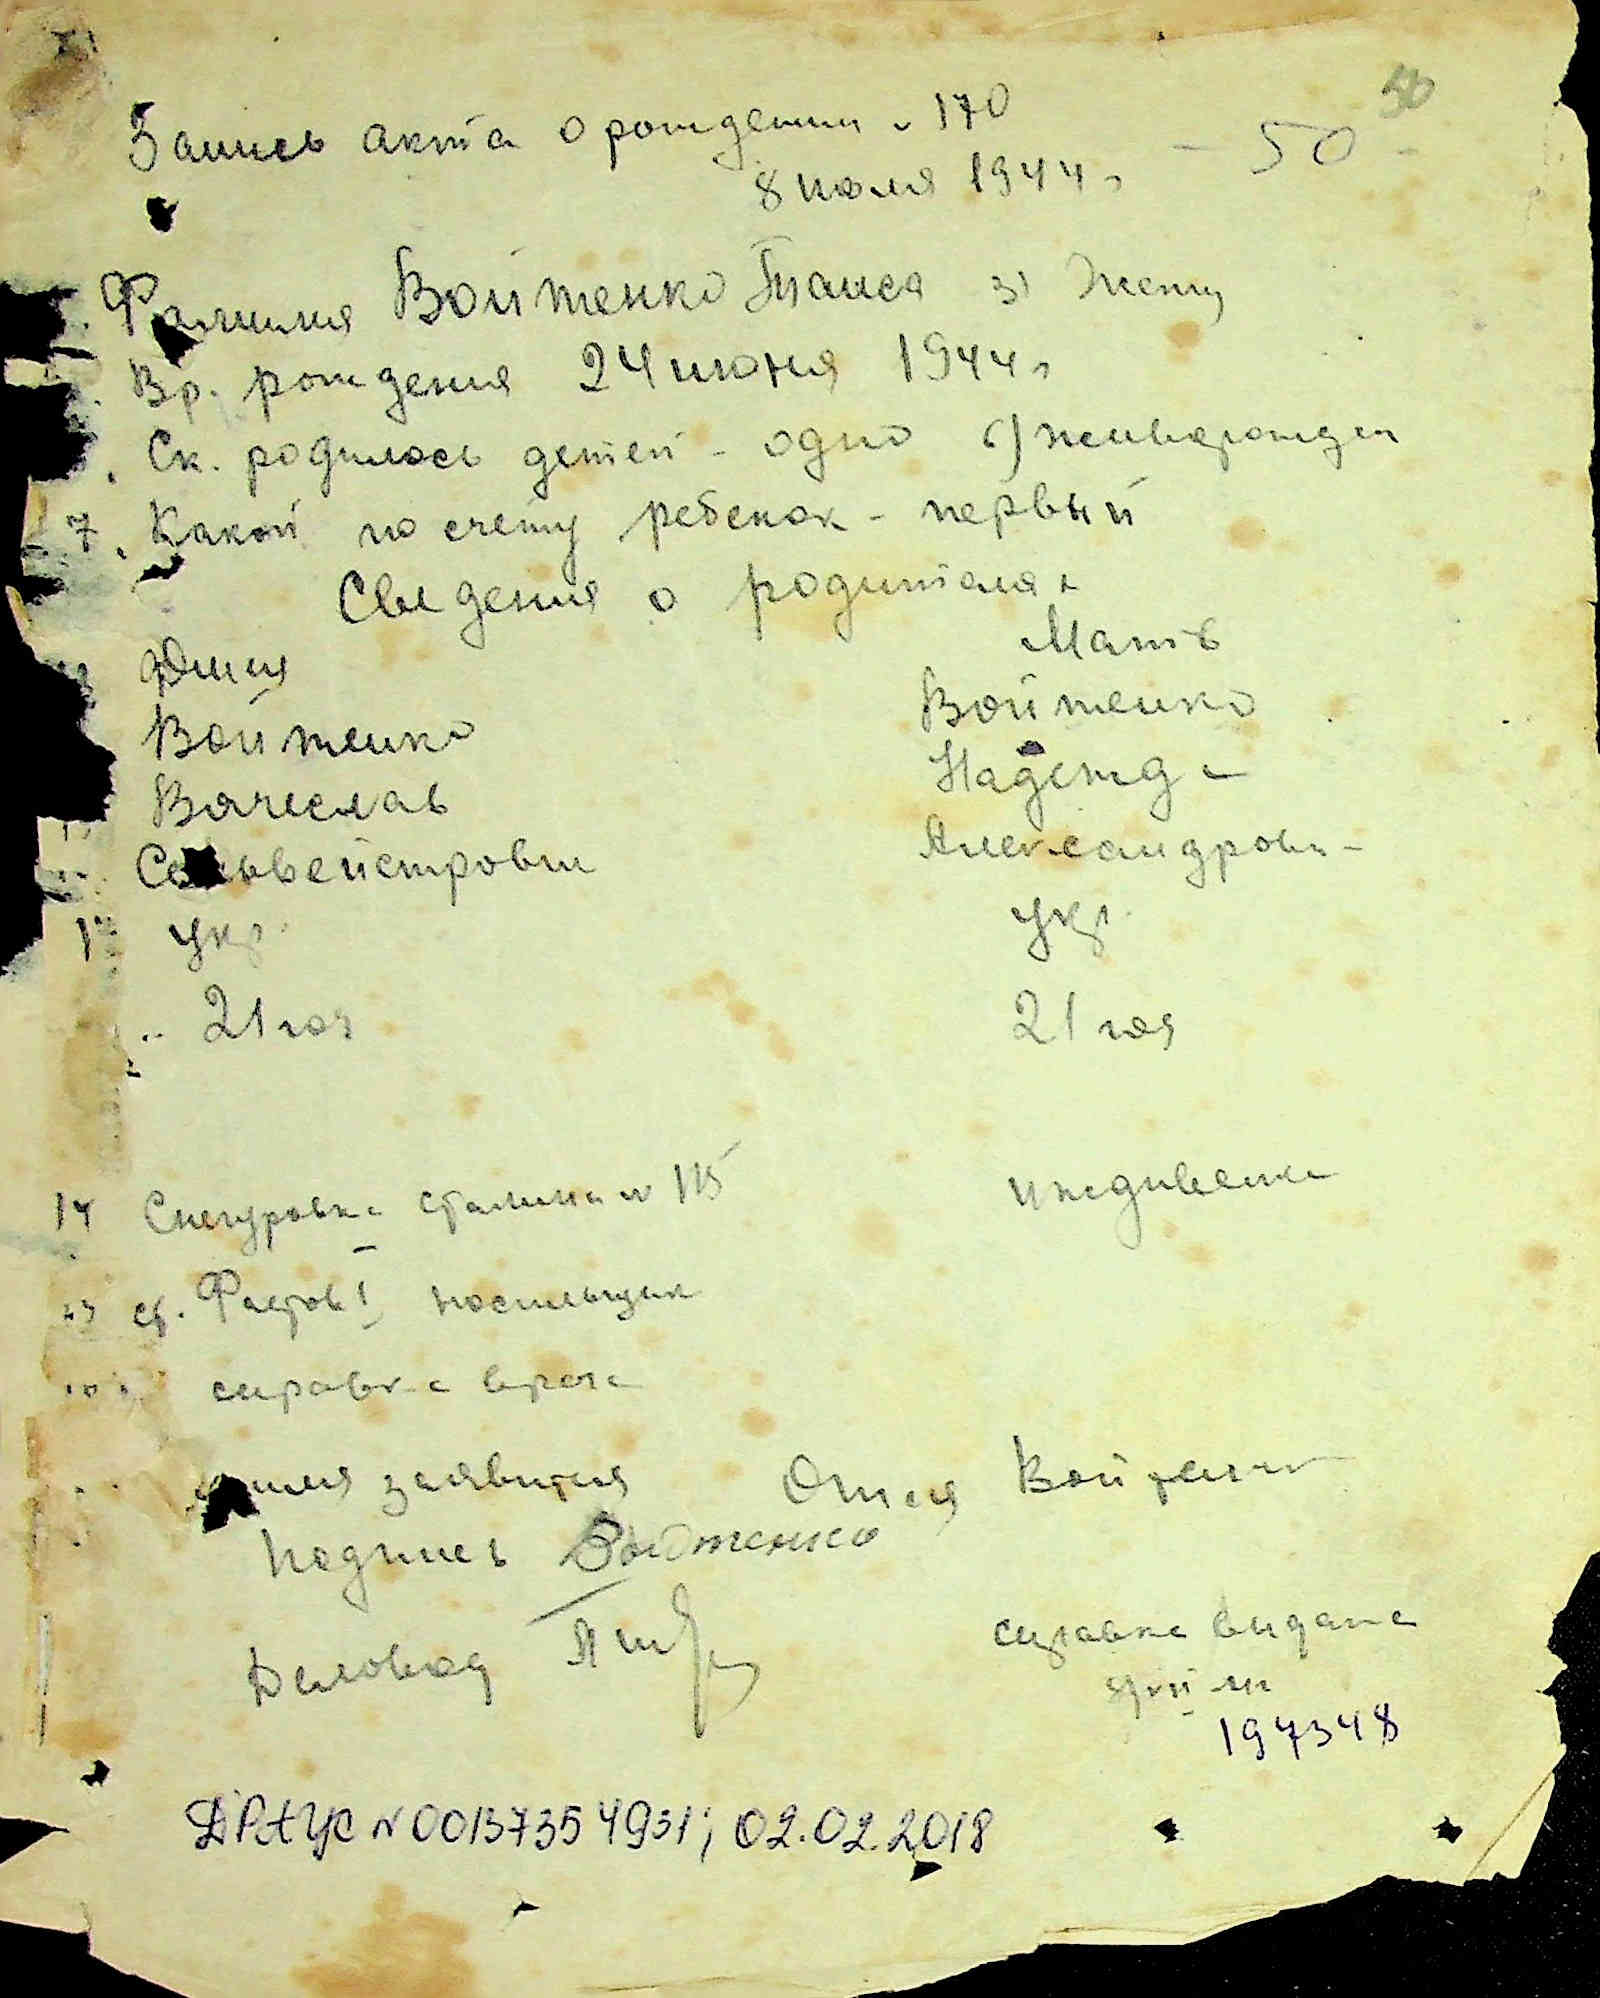 Запись акта о рождении № 170
50
8 июля 1944 г
- 50 -
Фамилия Войтенко Таиса 3) Жену
Вр. рождения 24 июня 1944 г
Ск. родилось детей - одно 6) живорожден
7. Какой по счету ребенок - первый
Сведения о родителях
Отец Мать
Войтенко Войтенко
Вячеслав Надежда
Сельвейстрович Александровна
укр. укр.
21 год 21 год
14 Снегуровка Сталина № 115 иждивенка
ст. Фастов I, носильщик
справка врача
заявителя Отец Войтенко
Подпись Войтенко
Деловод
справка выдана
197348
ДРАЦС № 00137354931; 02.02.2018